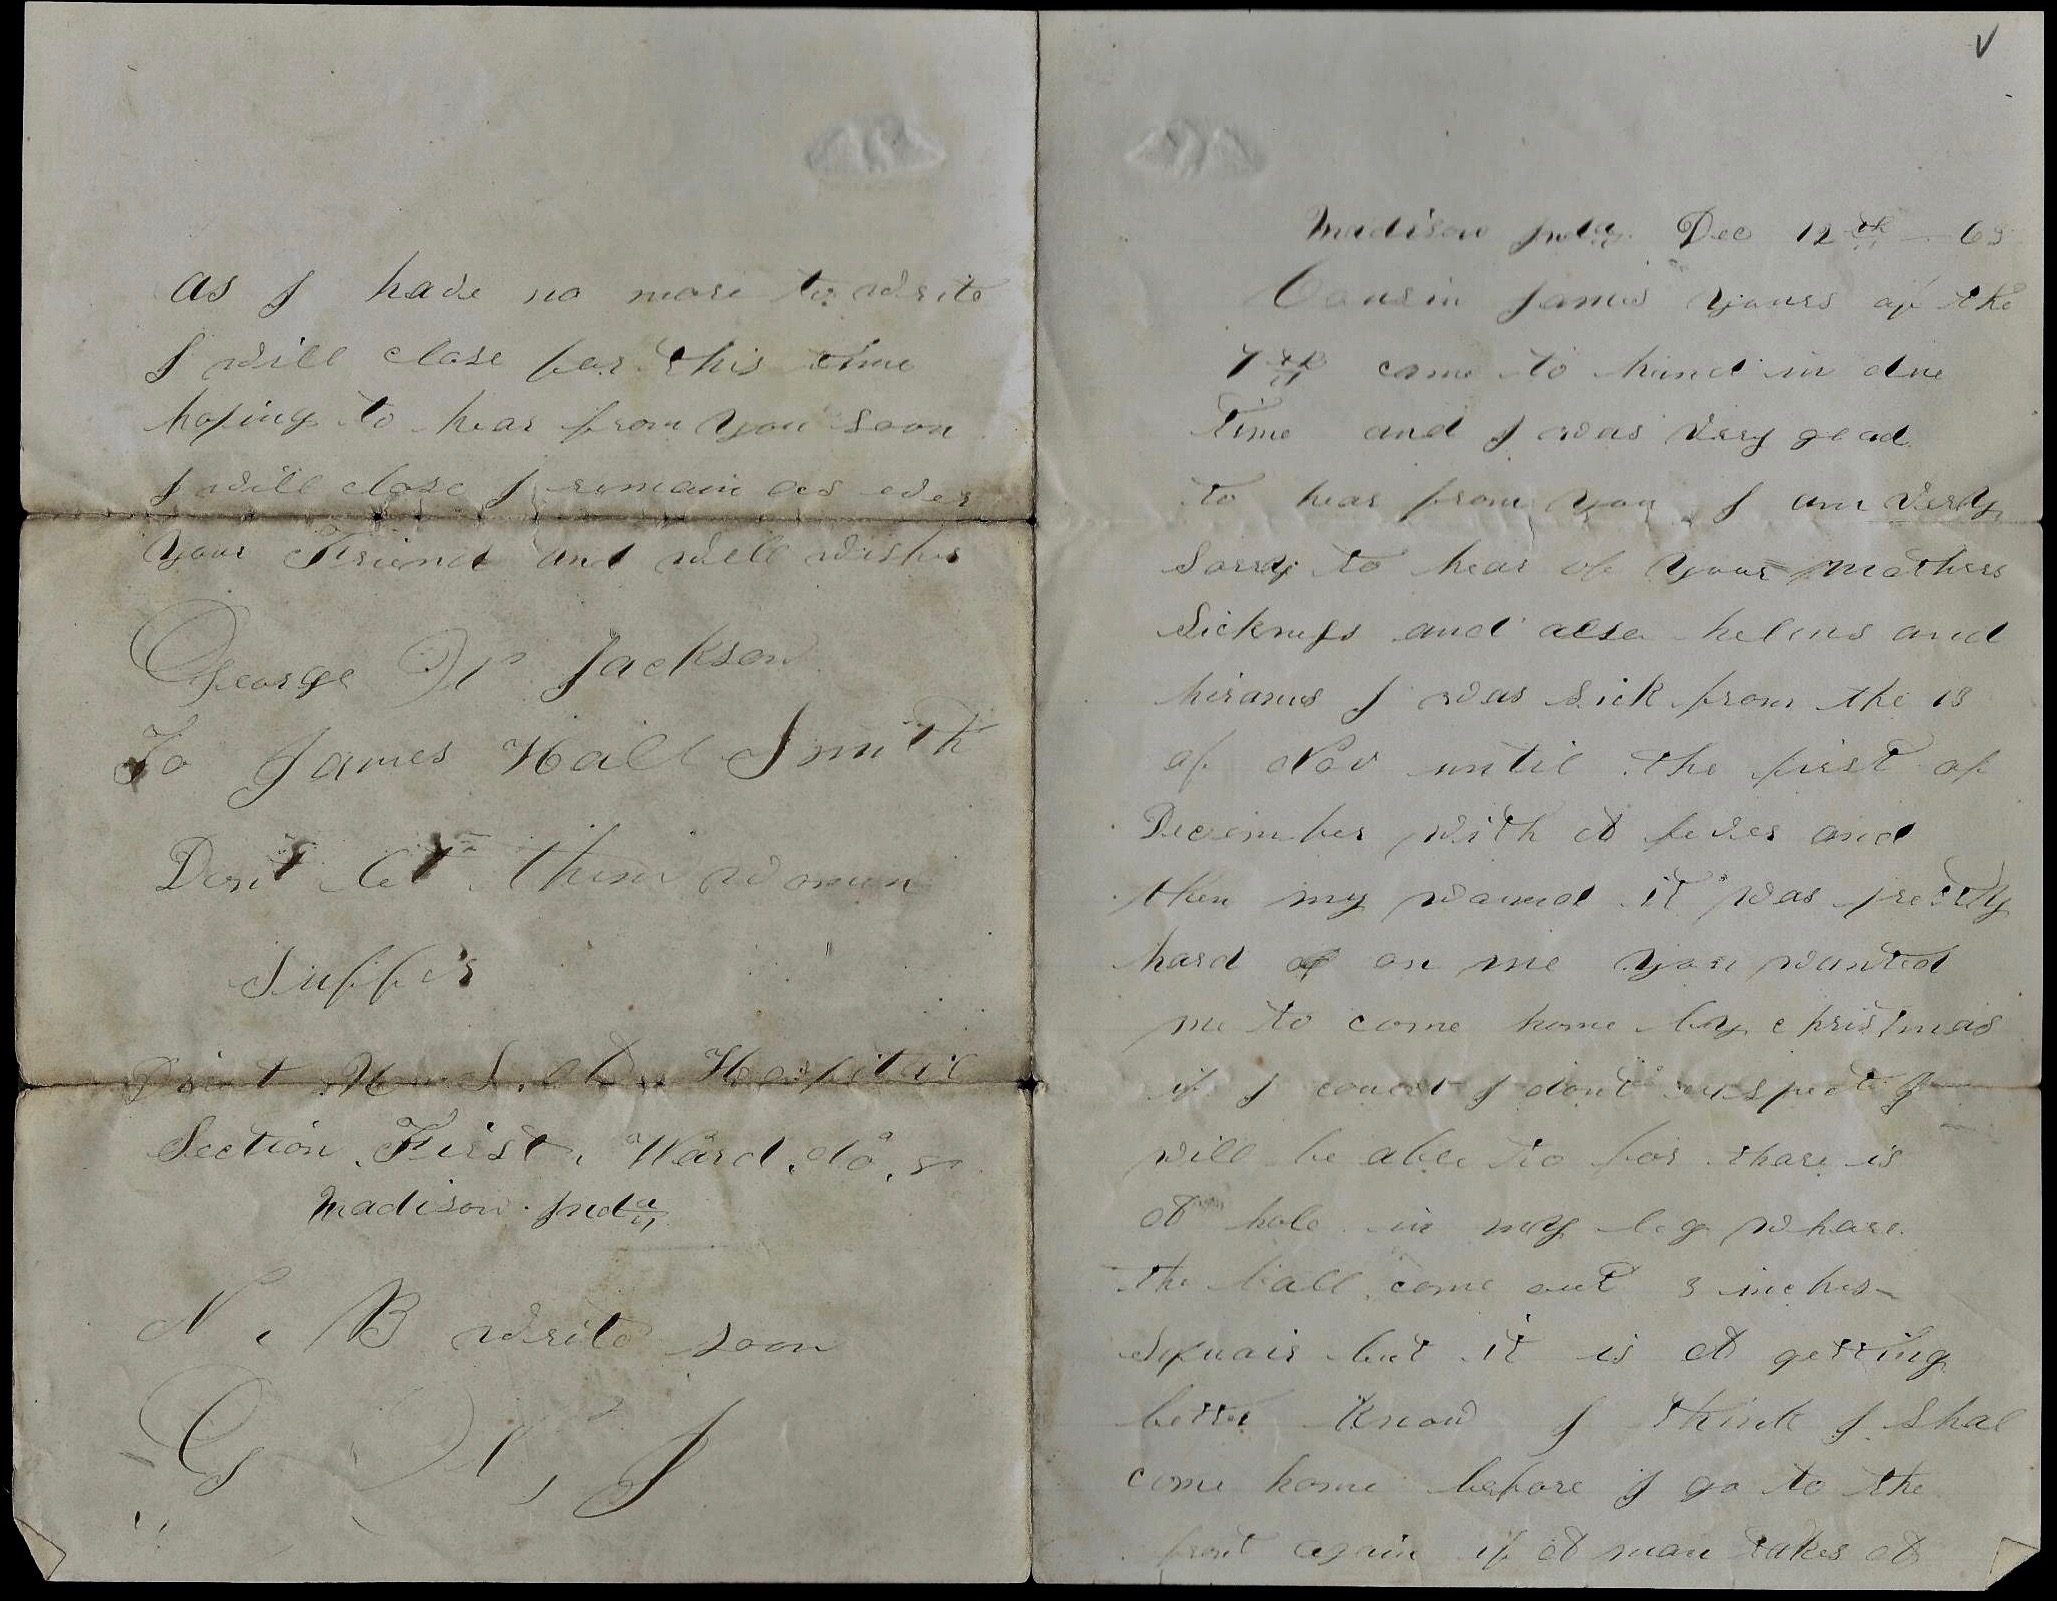 Madison Inda Dec 12th — 63
Cousin James yours of the
7th came to hand in due
time and I was very glad
to hear from you I am very
Sorry to hear of your mothers
Sickness and also helens and
hirams I was sick from the 13
of Nov until the first of
December with A fever and
then my wound it was pretty
hard on me you wanted
me to come home by christmas
if I could I dont expect I
will be able to for thare is
A hole in my leg whare
the ball come out 3 inches
Squair but it is A getting
better Know I think I Shal
come home before I go to the
front again if A man takes A
as I have no more to write
I will close for this time
hoping to hear from you soon
I will close I remain as ever
your Friend and well wisher
George W Jackson
To James Hall Smith
Dont let them women
Suffer
Hospital
Section First, Ward, do,
Madison Inda
N. B write soon
G W, J